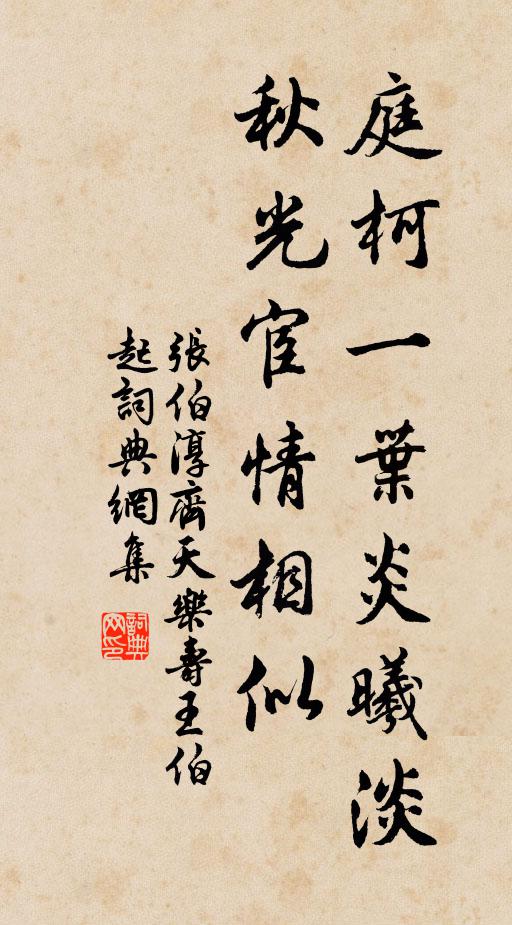 庭柯一葉炎曦淡
秋光宦情相似
張伯淳齊天樂壽王伯
起詞典網集
詞典
网印